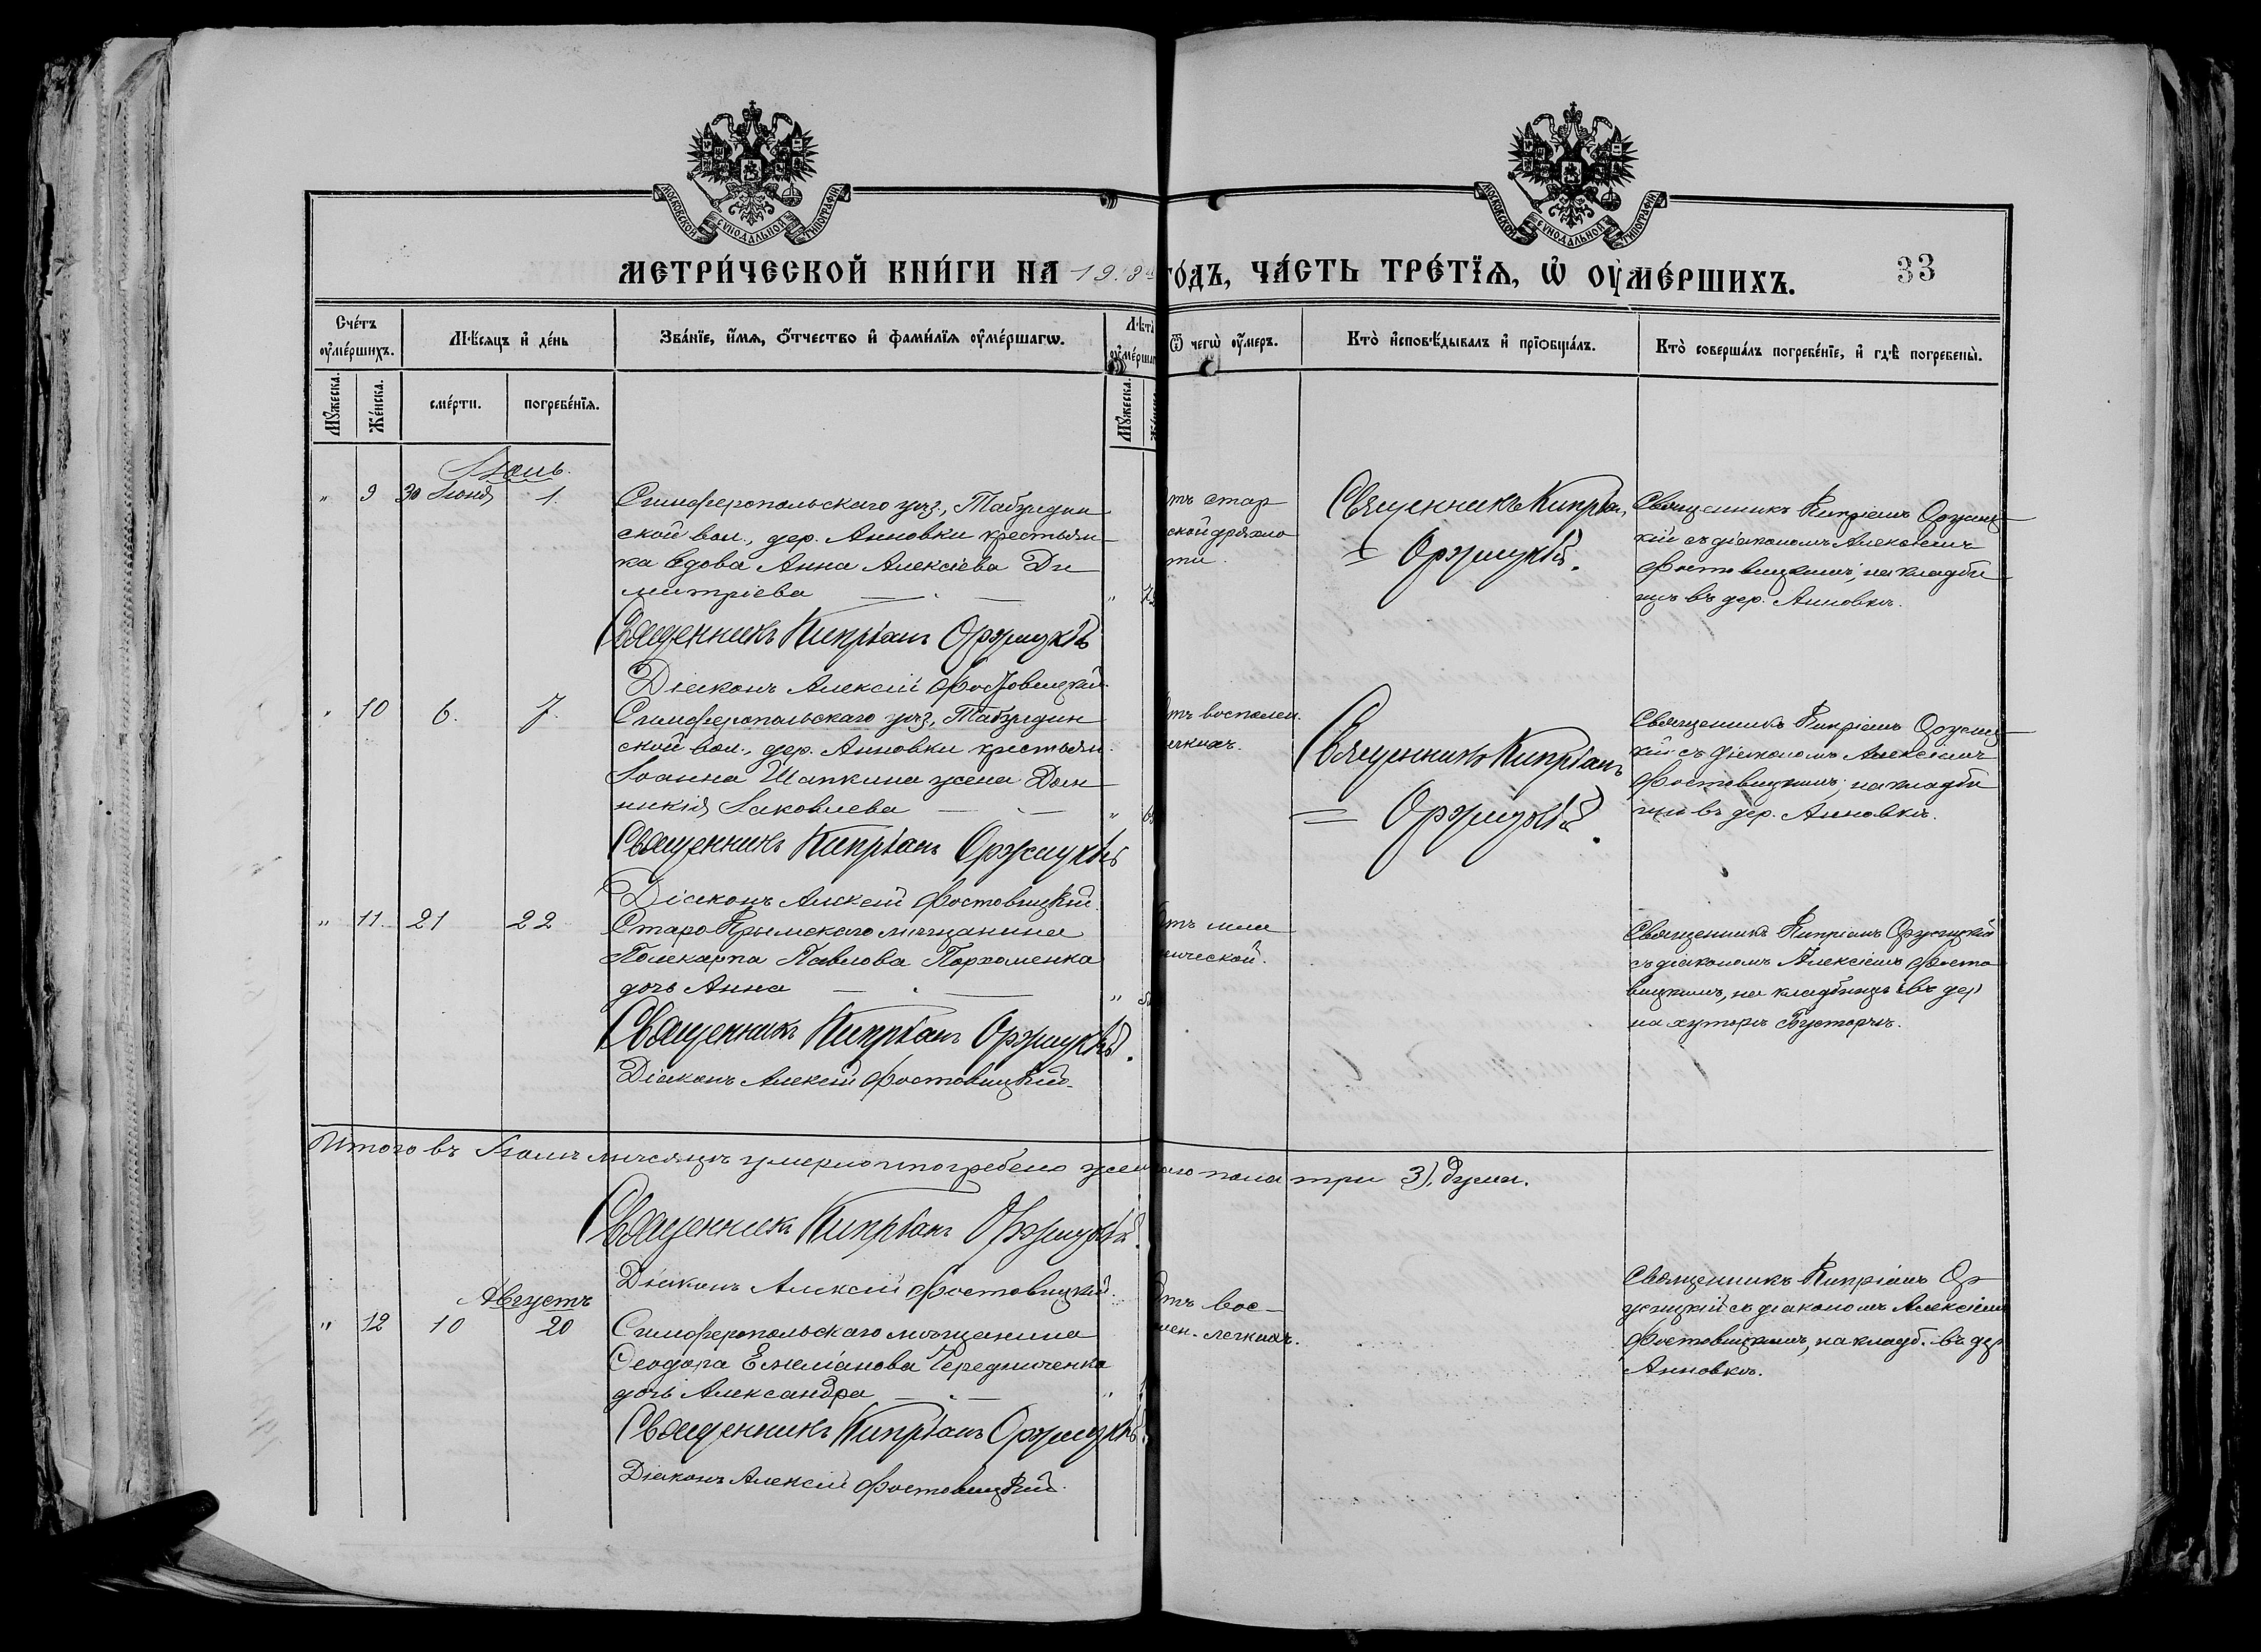 МОСКОВСКОЙ СѴНОДАЛЬНОЙ ТИПОГРАФІИ
МОСКОВСКОЙ СѴНОДАЛЬНОЙ ТИПОГРАФІИ
МЕТРИ́ЧЕСКОЙ КНИ́ГИ НА 19 3 го́дъ, ЧА́СТЬ ТРЕ́ТЇѦ, Ѡ ОУМЕ́РШИХЪ. 33
Сче́тъ оуме́ршихъ.
Мѣ́сяцъ и де́нь
Зва́нїе, и́мѧ, о́тчество и фами́лїѧ оуме́ршагѡ.
Лѣт
оуме́ршаг
Ѿ чегѡ̀ оу́меръ.
Кто̀ исповѣ́дывалъ и прїобща́лъ.
Кто̀ соверша́лъ погребе́нїе, и гдѣ̀ погребены̀.
Мꙋ́жеска.
Же́нска.
сме́рти.
погребе́нїѧ.
Мꙋ́жеска.
Іюль.
" 9 30 Іюня 1.
Симферопольскаго уѣз., Табулдин
ской вол., дер. Анновки крестьян-
ка вдова Анна Алексіева Ди
митріева
Священникъ Кипріанъ Оржицкій
Діаконъ Алексій Фостовицкій.
тъ стар
ской дряхло
ти.
Священникъ Кипріан
Оржицкій.
Священникъ Кипріанъ Оржиц-
кій съ діакономъ Алексіемъ
Фостовицкимъ; на кладби
щѣ въ дер. Анновкѣ.
" 10 6. 7.
Симферопольскаго уѣз., Табулдин
ской вол., дер. Анновки крестьян.
Іоанна Шапкина жена Дом
никія Іаковлева
Священникъ Кипріанъ Оржицкій
Діаконъ Алексій Фостовицкій.
тъ воспален.
легкихъ.
Священникъ Кипріанъ
Оржицкій.
Священникъ Кипріанъ Оржиц-
кій съ діакономъ Алексіемъ
Фостовицкимъ; на кладби
щѣ въ дер. Анновкѣ.
" 11. 21 22
Старо Крымскаго мѣщанина
Полекарпа Павлова Пархоменка
дочь Анна
Священникъ Кипріанъ Оржицкій.
Діаконъ Алексій Фостовицкій.
нической.
Священникъ Кипріанъ Оржицкій
съ діакономъ Алексіемъ Фосто
вицкимъ, на кладбищѣ въ дер
на хуторѣ
Итого въ Іюлѣ мѣсяцѣ умерло и погребено жен го пола три 3), души.
Священникъ Кипріанъ Оржицкій.
Діаконъ Алексій Фостовицкій.
Августъ
" 12 10 20
Симферопольскаго мѣщанина
Ѳеодора Емеліанова Чередниченка
дочь Александра
Священникъ Кипріанъ Оржицкій.
Діаконъ Алексій Фостовицкій.
тъ вос-
лен. легкихъ.
Священникъ Кипріанъ Ор
жицкій съ діакономъ Алексіемъ
Фостовицкимъ, на кладб. въ дер
Анновкѣ.